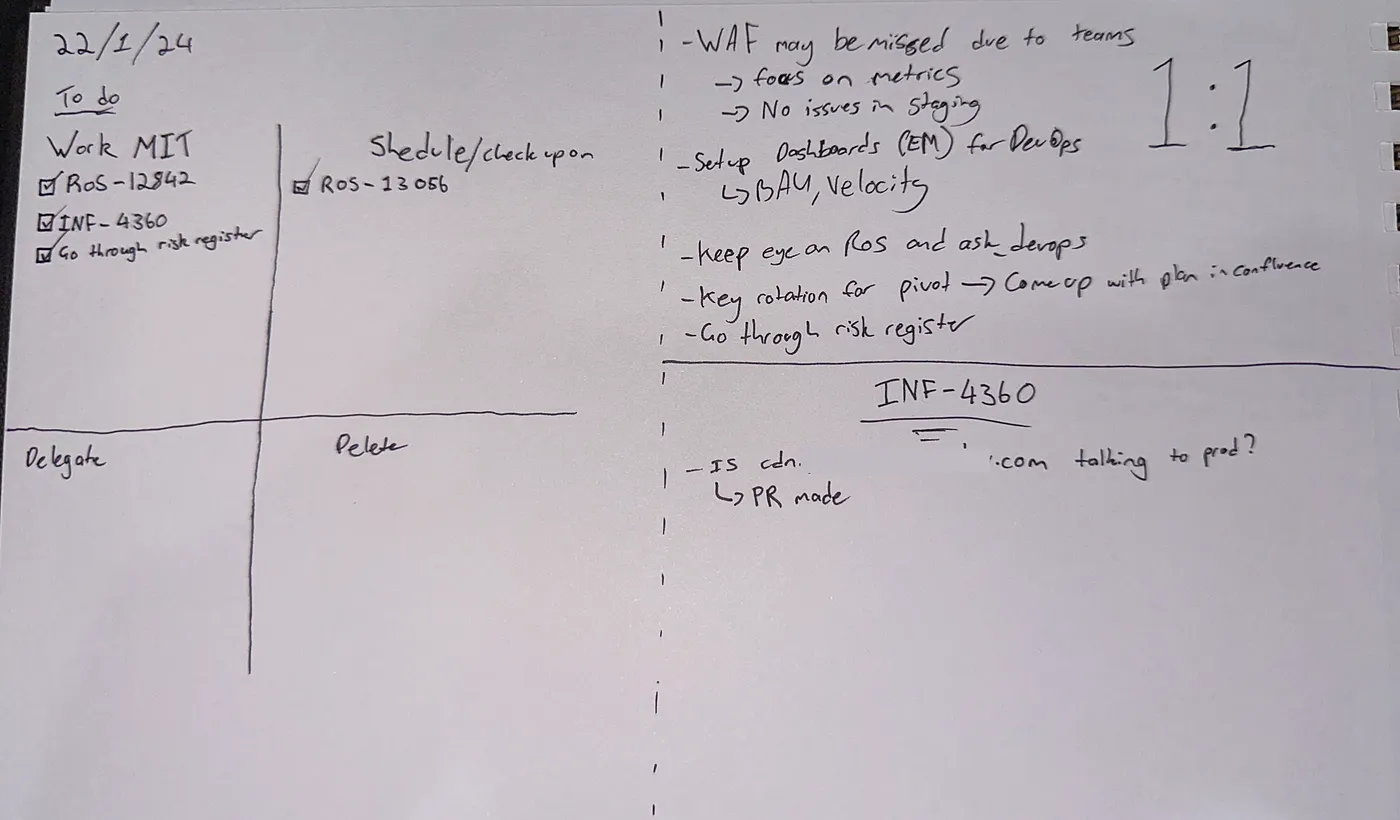 22/1/24
To do
Work MIT
ROS-12842
INF-4360
Go through risk register
Shedule/check upon
ROS-13056
Delegate
Delete
1:1
-WAF may be missed due to teams
→ focus on metrics
→ No issues in staging
-Setup Dashboards (EM) for DevOps
↳ BAU, Velocity
-Keep eye on ROS and ask_devops
-Key rotation for pivot → Come up with plan in confluence
-Go through risk register
INF-4360
- IS cdn. .com talking to prod?
↳ PR made